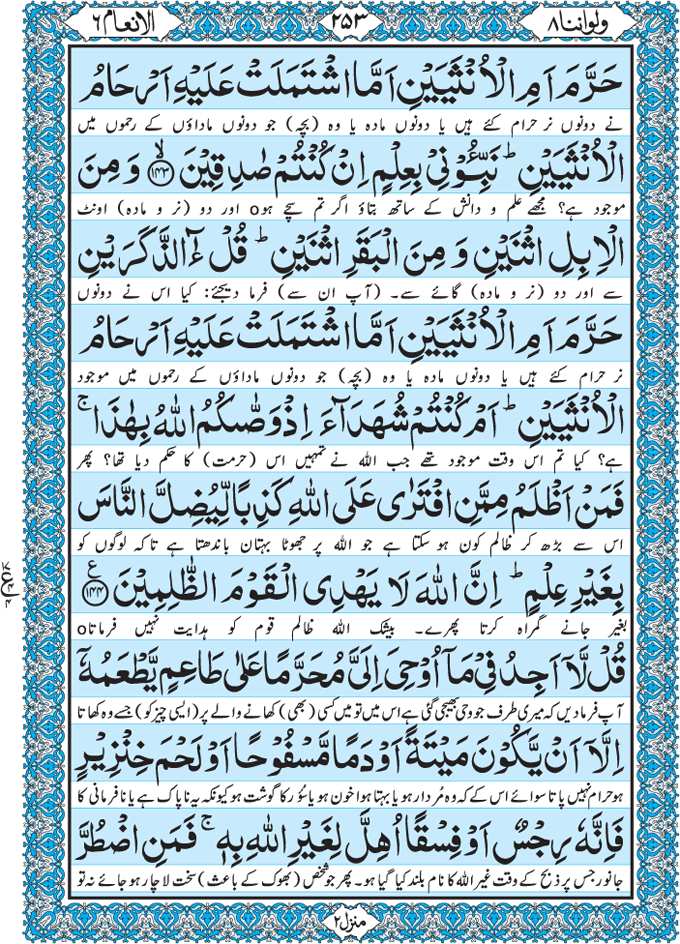 ولواننا ٨ ٢٥٣ الانعام ٦
حَرَّمَ اَمِ الْاُنْثَیَیْنِ اَمَّا اشْتَمَلَتْ عَلَیْهِ اَرْحَامُ
نے دونوں نر حرام کئے ہیں یا دونوں مادہ یا وہ (بچہ) جو دونوں ماداؤں کے رحموں میں
الْاُنْثَیَیْنِ ؕ نَبِّـُٔوْنِیْ بِعِلْمٍ اِنْ كُنْتُمْ صٰدِقِیْنَ ۙ﴿١٤٣﴾ وَ مِنَ
موجود ہے؟ مجھے علم و دانش کے ساتھ بتاؤ اگر تم سچے ہوo اور دو (نر و مادہ) اونٹ
الْاِبِلِ اثْنَیْنِ وَ مِنَ الْبَقَرِ اثْنَیْنِ ؕ قُلْ ءٰٓالذَّكَرَیْنِ
سے اور دو (نر و مادہ) گائے سے۔ (آپ ان سے) فرما دیجئے: کیا اس نے دونوں
حَرَّمَ اَمِ الْاُنْثَیَیْنِ اَمَّا اشْتَمَلَتْ عَلَیْهِ اَرْحَامُ
نر حرام کئے ہیں یا دونوں مادہ یا وہ (بچہ) جو دونوں ماداؤں کے رحموں میں موجود
الْاُنْثَیَیْنِ ؕ اَمْ كُنْتُمْ شُهَدَآءَ اِذْ وَصّٰىكُمُ اللّٰهُ بِهٰذَا ۚ
ہے؟ کیا تم اس وقت موجود تھے جب اللہ نے تمہیں اس (حرمت) کا حکم دیا تھا؟ پھر
فَمَنْ اَظْلَمُ مِمَّنِ افْتَرٰی عَلَی اللّٰهِ كَذِبًا لِّیُضِلَّ النَّاسَ
اس سے بڑھ کر ظالم کون ہو سکتا ہے جو اللہ پر جھوٹا بہتان باندھتا ہے تاکہ لوگوں کو
بِغَیْرِ عِلْمٍ ؕ اِنَّ اللّٰهَ لَا یَهْدِی الْقَوْمَ الظّٰلِمِیْنَ ﴿١٤٤﴾ ع
بغیر جانے گمراہ کرتا پھرے۔ بیشک اللہ ظالم قوم کو ہدایت نہیں فرماتاo
قُلْ لَّاۤ اَجِدُ فِیْ مَاۤ اُوْحِیَ اِلَیَّ مُحَرَّمًا عَلٰی طَاعِمٍ یَّطْعَمُهٗۤ
آپ فرما دیں کہ میری طرف جو وحی بھیجی گئی ہے اس میں تو میں کسی (بھی) کھانے والے پر (ایسی چیز کو) جسے وہ کھاتا
اِلَّاۤ اَنْ یَّكُوْنَ مَیْتَةً اَوْ دَمًا مَّسْفُوْحًا اَوْ لَحْمَ خِنْزِیْرٍ
ہو حرام نہیں پاتا سوائے اس کے کہ وہ مُردار ہو یا بہتا ہوا خون ہو یا سؤر کا گوشت ہو کیونکہ یہ ناپاک ہے یا نافرمانی کا
فَاِنَّهٗ رِجْسٌ اَوْ فِسْقًا اُهِلَّ لِغَیْرِ اللّٰهِ بِهٖ ۚ فَمَنِ اضْطُرَّ
جانور جس پر ذبح کے وقت غیر اللہ کا نام بلند کیا گیا ہو۔ پھر جو شخص (بھوک کے باعث) سخت لاچار ہو جائے نہ تو
منزل ٢